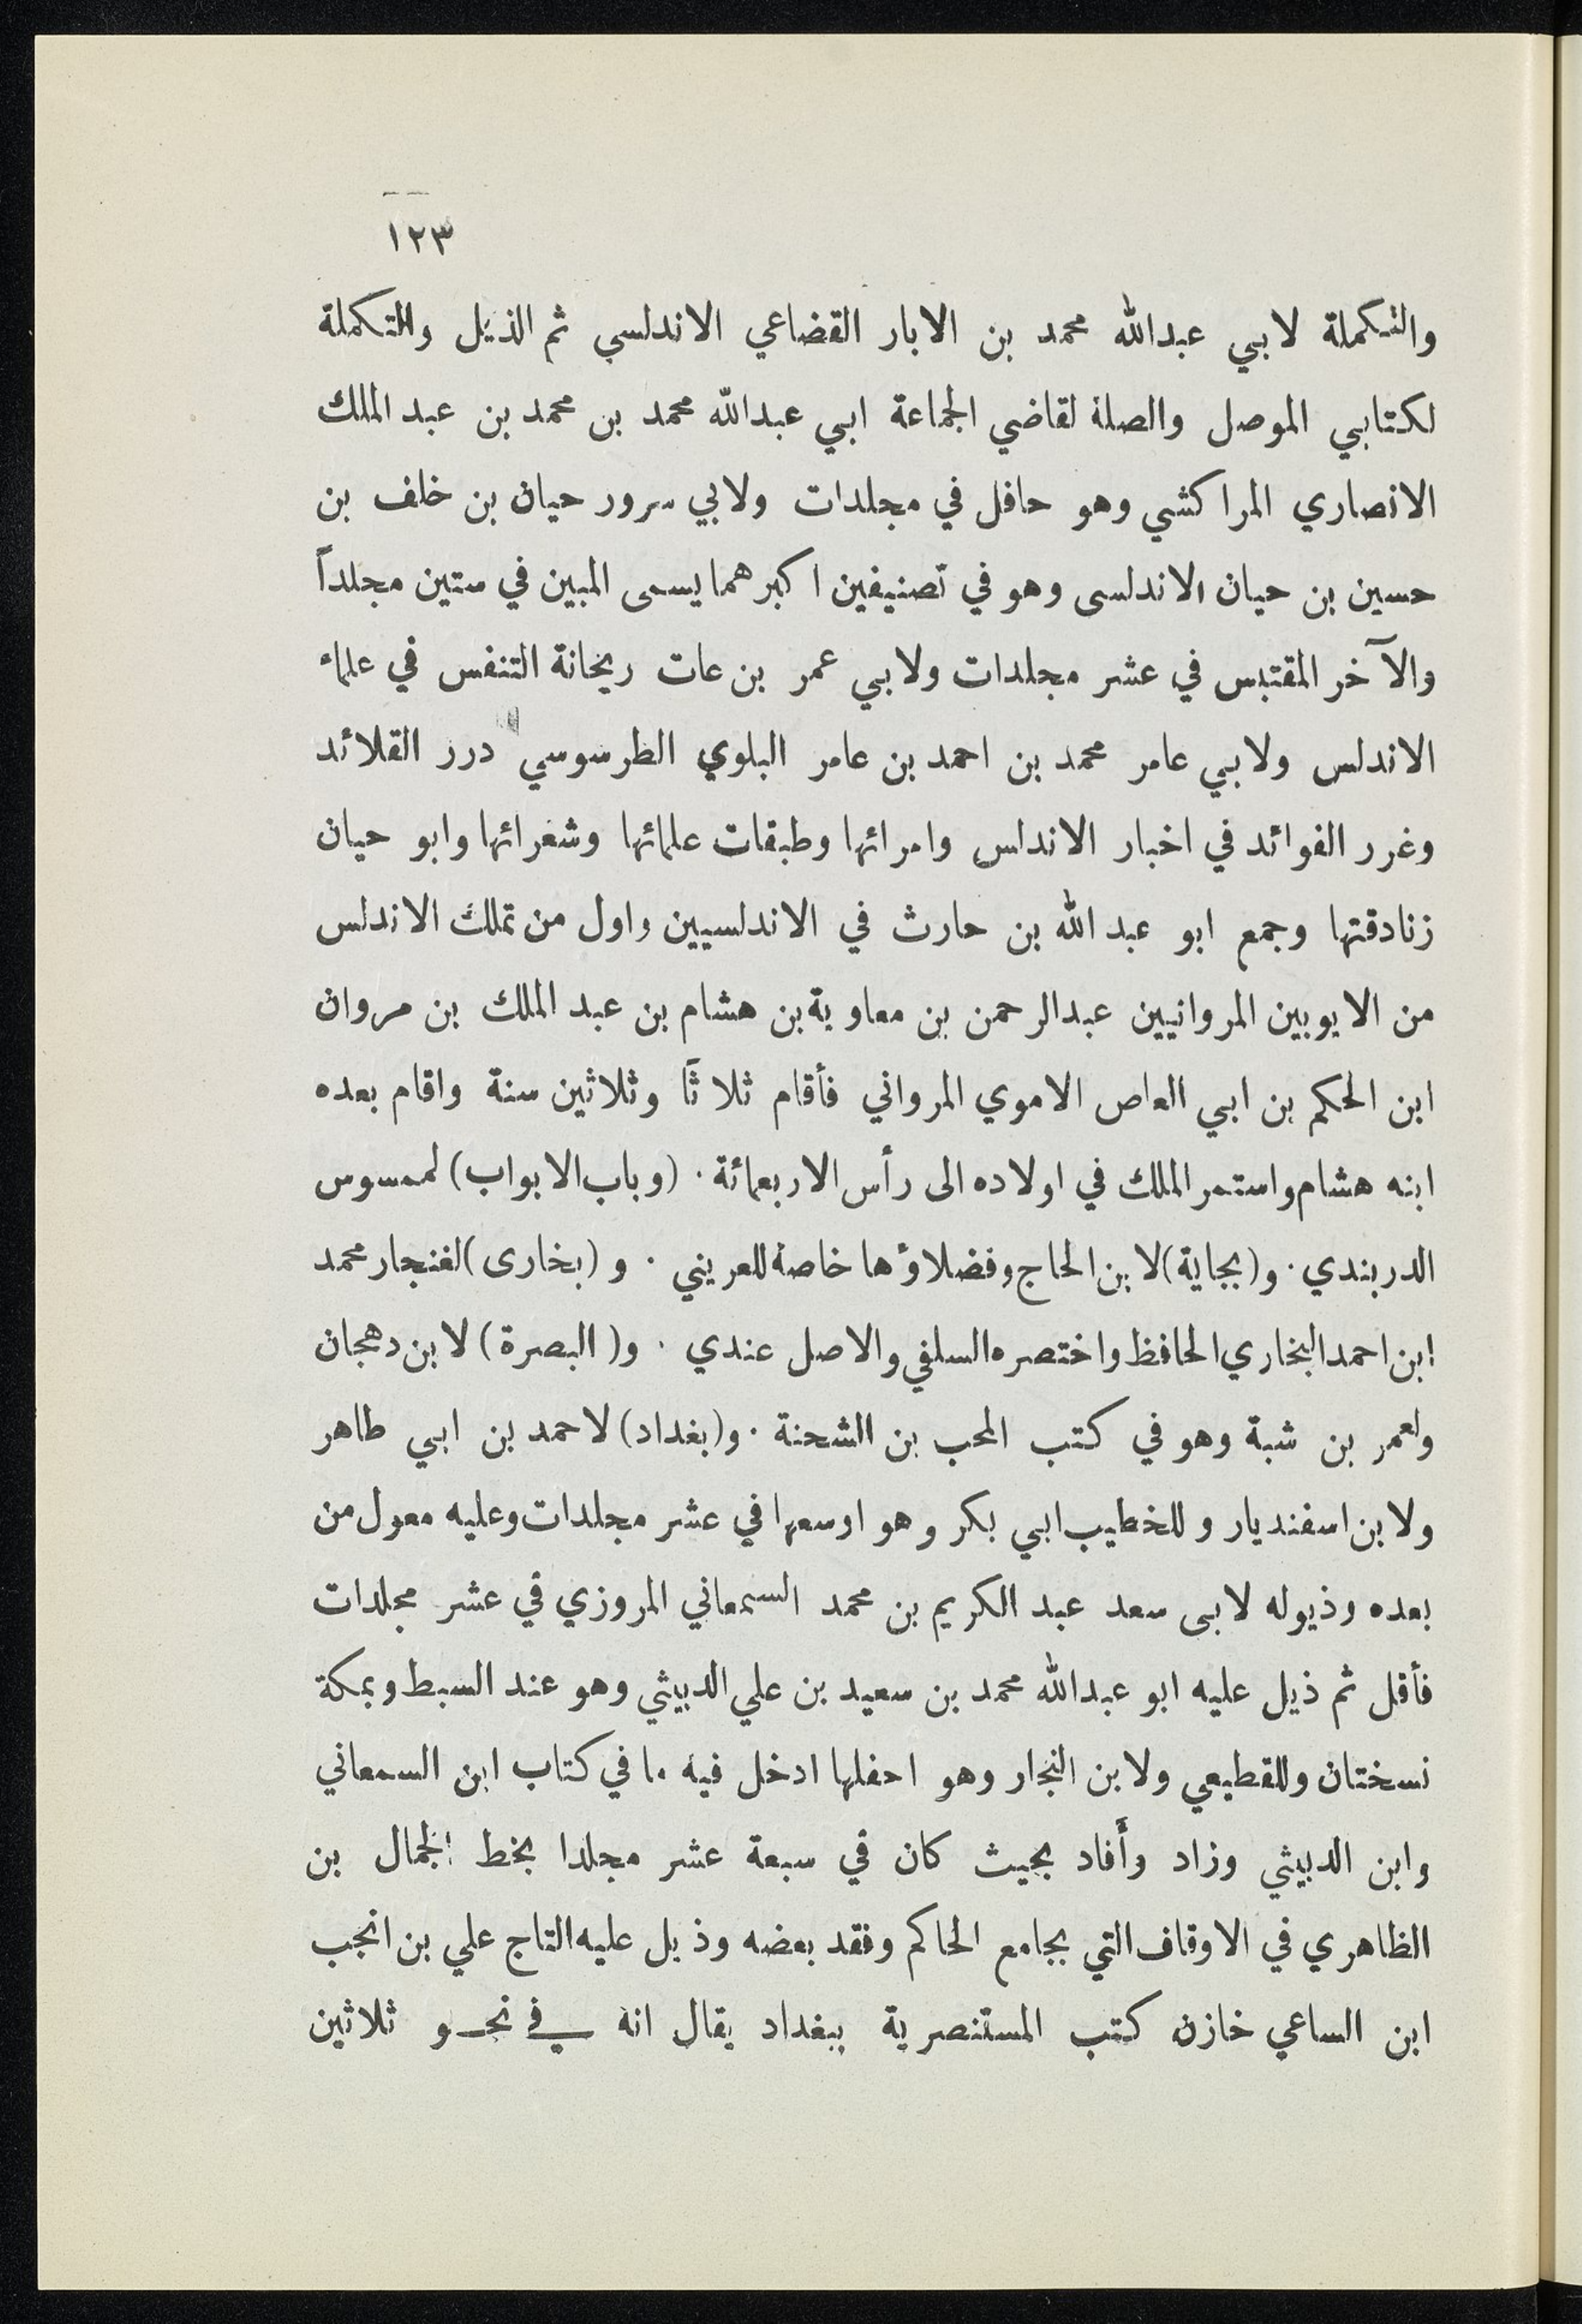 ١٢٣
والتكملة لابي عبدالله محمد بن الابار القضاعي الاندلسي ثم الذيل والتكملة
لكتابي الموصل والصلة لقاضي الجماعة ابي عبدالله محمد بن محمد بن عبد الملك
الانصاري المراكشي وهو حافل في مجلدات ولابي سرور حيان بن خلف بن
حسين بن حيان الاندلسى وهو في تصنيفين اكبرهما يسمى المبين في ستين مجلداً
والآخر المقتبس في عشر مجلدات ولابي عمر بن عات ريحانة التنفس في علماء
الاندلس ولابي عامر محمد بن احمد بن عامر البلوي الطرسوسي درر القلائد
وغرر الفوائد في اخبار الاندلس وامرائها وطبقات علمائها وشعرائها وابو حيان
زنادقتها وجمع ابو عبد الله بن حارث في الاندلسيين واول من تملك الاندلس
من الايوبيين المروانيين عبدالرحمن بن معاوية بن هشام بن عبد الملك بن مروان
ابن الحكم بن ابي العاص الاموي المرواني فأقام ثلاثاً وثلاثين سنة واقام بعده
ابنه هشام واستمر الملك في اولاده الى رأس الاربعمائة . (وباب الابواب) لممسوس
الدربندي . و(بجاية) لابن الحاج وفضلاؤها خاصة للعريني . و (بخارى) لغنجار محمد
ابن احمد البخاري الحافظ واختصره السلفي والاصل عندي . و( البصرة ) لابن دهجان
ولعمر بن شبة وهو في كتب المحب بن الشحنة . و(بغداد) لاحمد بن ابي طاهر
ولابن اسفنديار وللخطيب ابي بكر وهو اوسعها في عشر مجلدات وعليه معول من
بعده وذيوله لابى سعد عبد الكريم بن محمد السمعاني المروزي في عشر مجلدات
فأقل ثم ذيل عليه ابو عبدالله محمد بن سعيد بن علي الدبيثي وهو عند السبط وبمكة
نسختان وللقطيعي ولابن النجار وهو احفلها ادخل فيه ما في كتاب ابن السمعاني
وابن الدبيثي وزاد وأفاد بحيث كان في سبعة عشر مجلدا بخط الجمال بن
الظاهري في الاوقاف التي بجامع الحاكم وفقد بعضه وذيل عليه التاج علي بن انجب
ابن الساعي خازن كتب المستنصرية ببغداد يقال انه في نحو ثلاثين